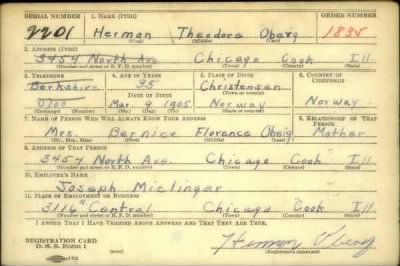 SERIAL NUMBER 1. NAME (Print) ORDER NUMBER
2201 Herman Theodore Oberg 1835
(First) (Middle) (Last)
2. ADDRESS (Print)
3454 North Ave Chicago Cook Ill.
(Number and street or R. F. D. number) (Town) (County) (State)
3. TELEPHONE 4. AGE IN YEARS 5. PLACE OF BIRTH 6. COUNTRY OF CITIZENSHIP
Berkshire 35 Christensen
DATE OF BIRTH (Town or county)
0700 Mar. 9 1905 Norway Norway
(Exchange) (Number) (Mo.) (Day) (Yr.) (State or country)
7. NAME OF PERSON WHO WILL ALWAYS KNOW YOUR ADDRESS 8. RELATIONSHIP OF THAT PERSON
Mrs. Bernice Florence Oberg Mother
(Mr., Mrs., Miss) (First) (Middle) (Last)
9. ADDRESS OF THAT PERSON
3454 North Ave. Chicago Cook Ill.
(Number and street or R. F. D. number) (Town) (County) (State)
10. EMPLOYER'S NAME
Joseph Mielinger
11. PLACE OF EMPLOYMENT OR BUSINESS
3116 N Central Chicago Cook Ill.
(Number and street or R. F. D. number) (Town) (County) (State)
I AFFIRM THAT I HAVE VERIFIED ABOVE ANSWERS AND THAT THEY ARE TRUE.
REGISTRATION CARD
D. S. S. Form 1 (over) Herman Oberg
(Registrant's signature)